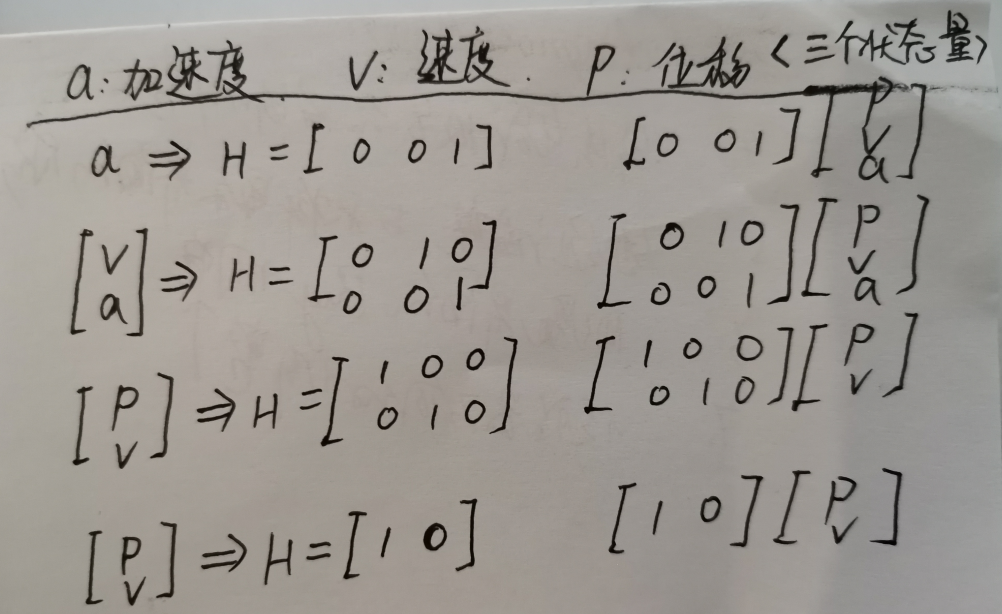 a: 加速度 V: 速度. P: 位移 <三个状态量>
a ⇒ H = [ 0 0 1 ] [ 0 0 1 ] [ P V a ]
[ V a ] ⇒ H = [ 0 1 0 0 0 1 ] [ 0 1 0 0 0 1 ] [ P V a ]
[ P V ] ⇒ H = [ 1 0 0 0 1 0 ] [ 1 0 0 0 1 0 ] [ P V ]
[ P V ] ⇒ H = [ 1 0 ] [ 1 0 ] [ P V ]